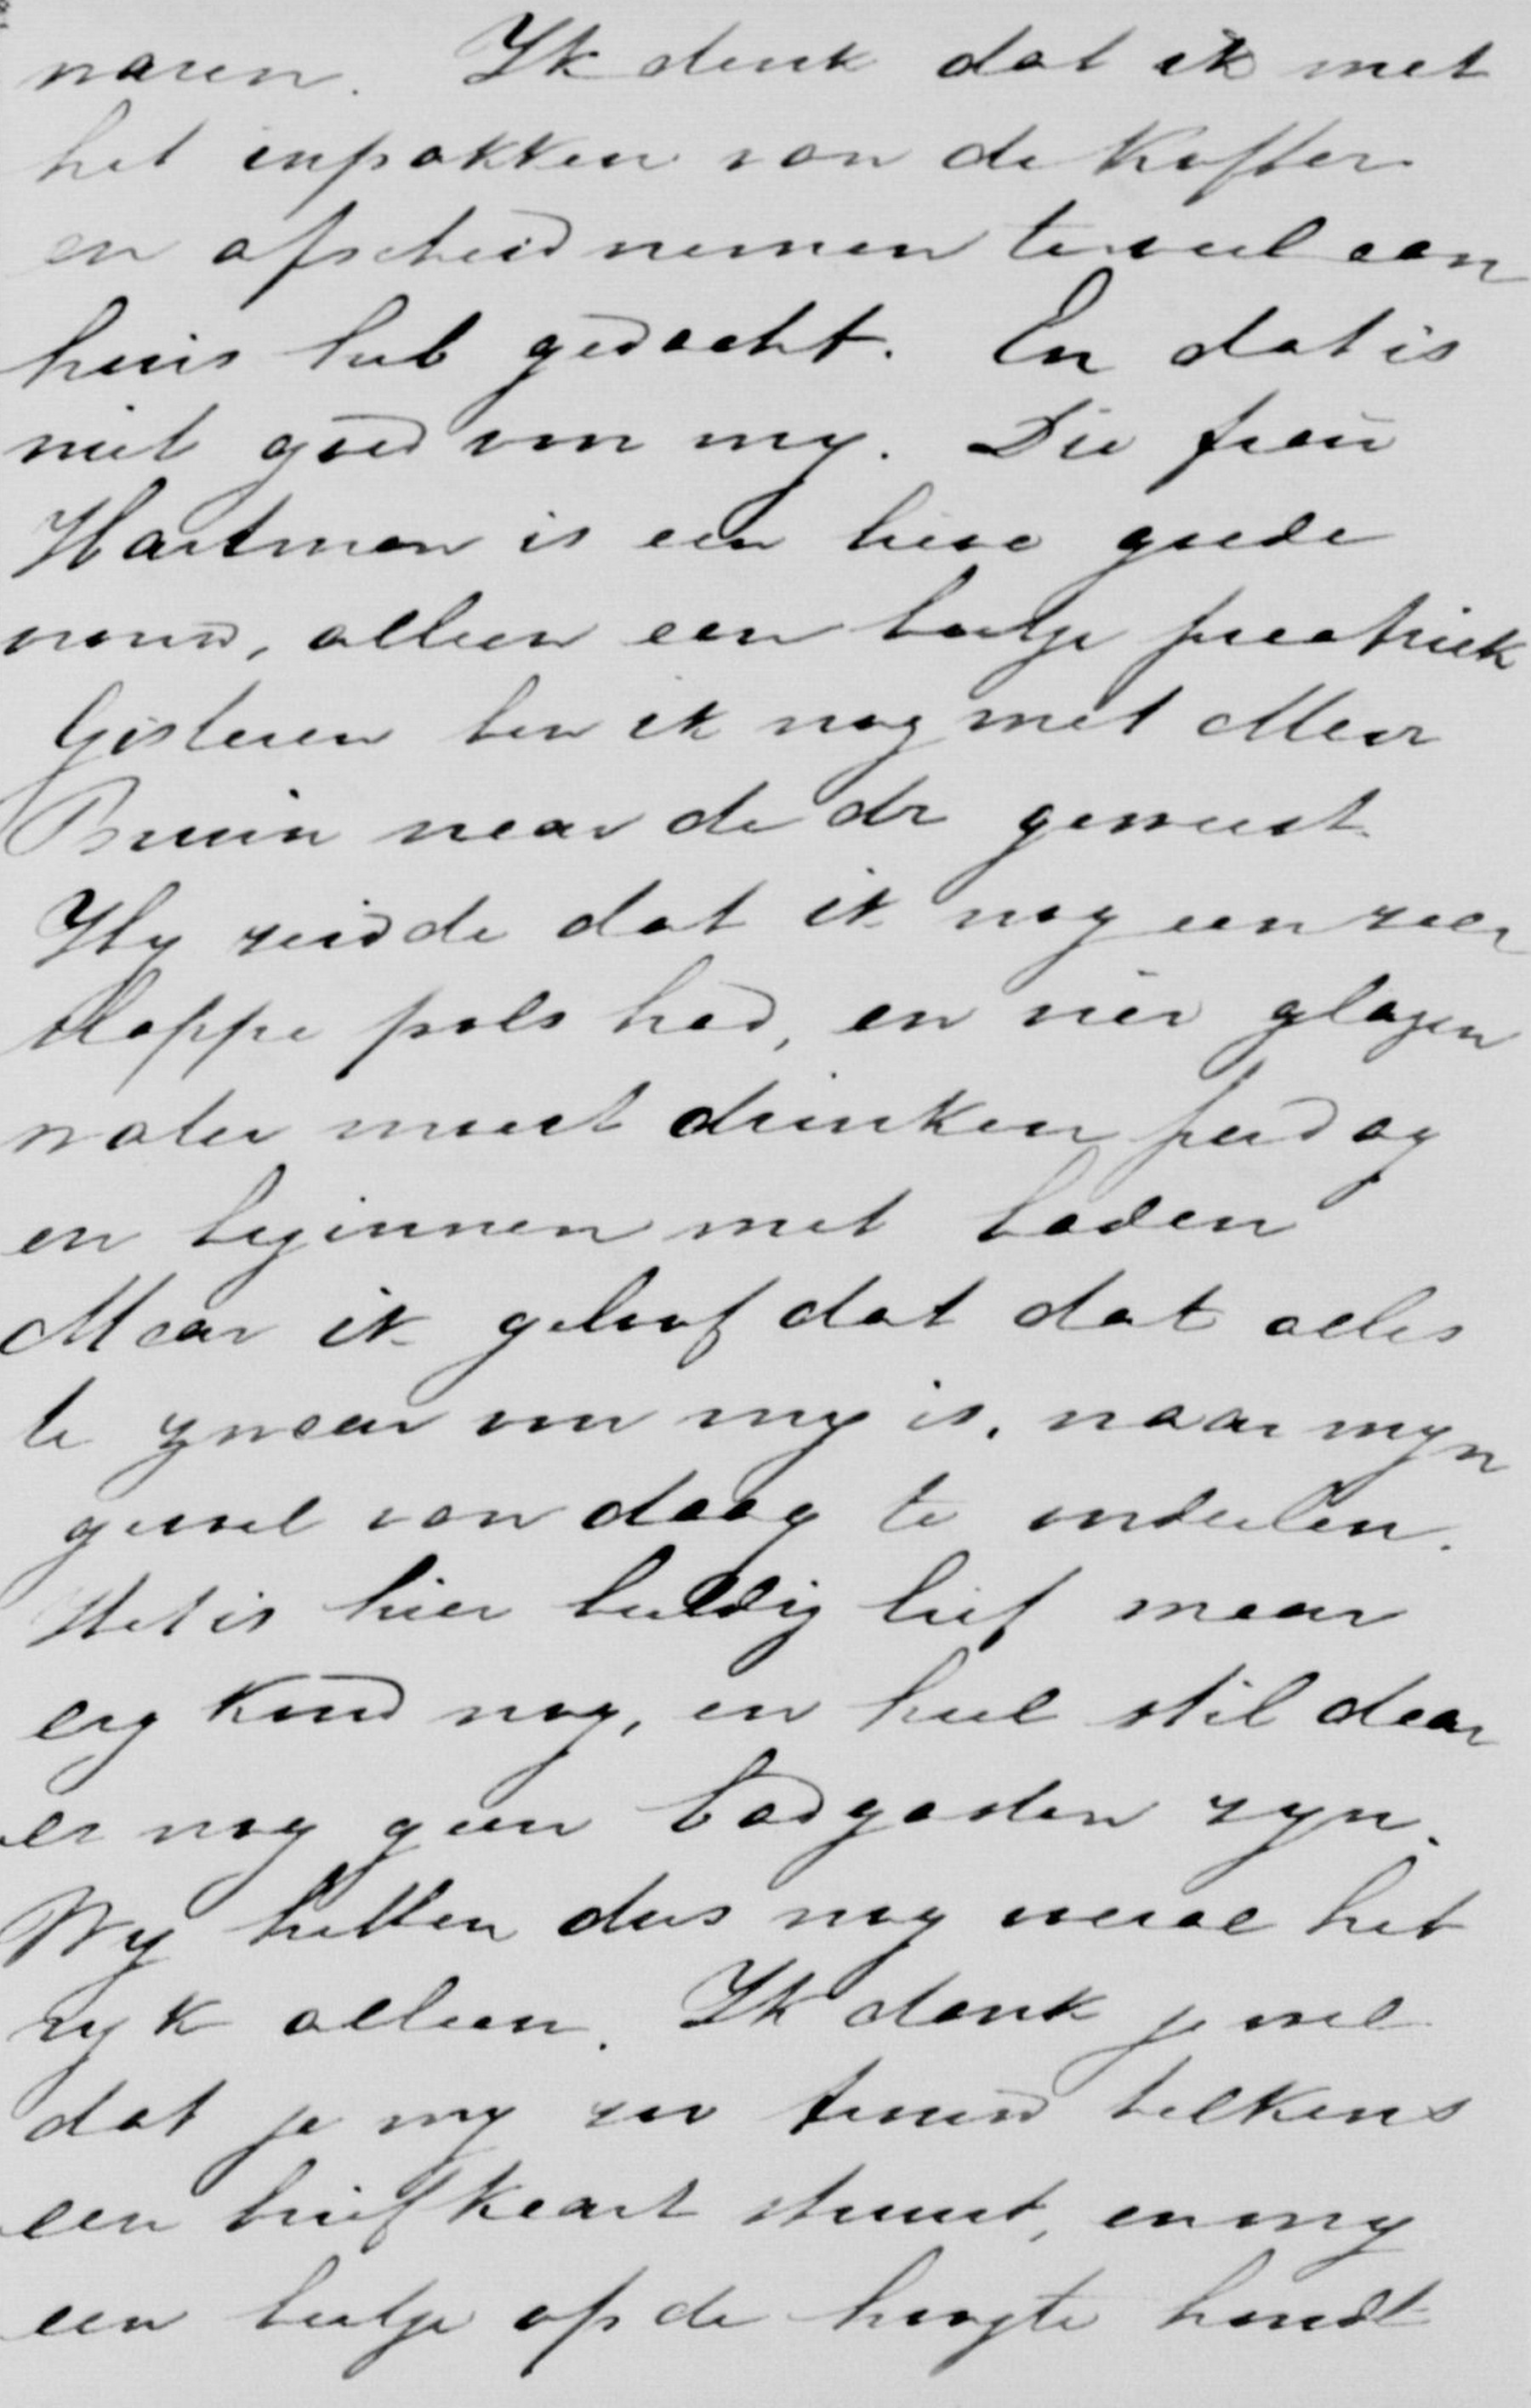 waren. Ik denk dat ik met
het inpakken van de koffer
en afscheid nemen te veel aan
huis heb gedacht. En dat is
niet goed voor my. Die frau
Hartman is een lieve goede
vrouw, alleen een beetje
Gisteren ben ik nog met Meur
Bruin naar de dr geweest.
Hy zeidde dat ik nog een zeer
slappe pols had, en vier glazen
water moest drinken per dag
en beginnen met baden
Maar ik geloof dat dat alles
te zwaar voor my is, naar myn
gevoel van daag te oordeelen.
Het is hier beeldig lief maar
erg koud nog, en heel stil daar
er nog geen badgasten zyn.
Wy hebben dus nog overal het
ryk alleen. Ik dank je wel
dat je my zoo trouw telkens
een briefkaart stuurt, en my
een beetje op de hoogte houdt